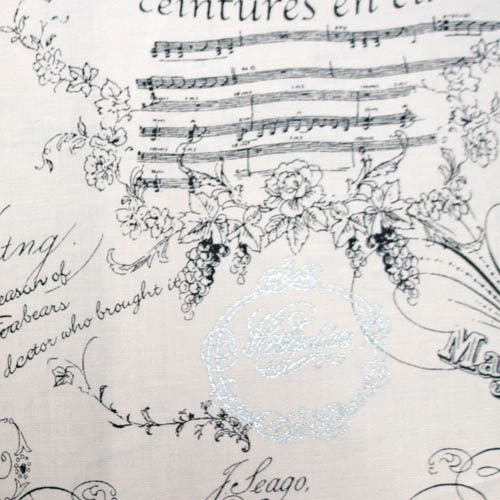 ceintures en cu
tng.
eason of
bears
doctor who brought it
Ma
J Seago,